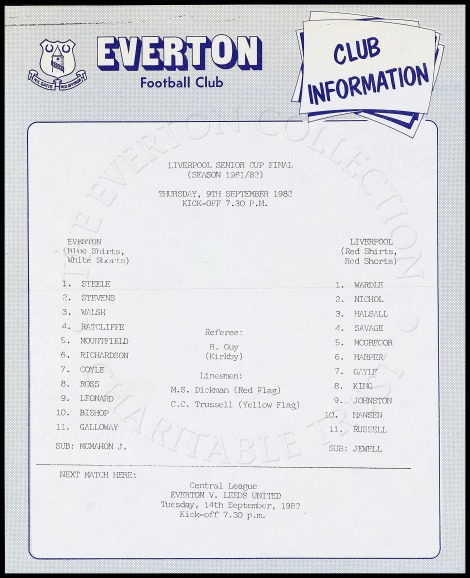 EVERTON
Football Club
CLUB
INFORMATION
LIVERPOOL SENIOR CUP FINAL
(SEASON 1981/82)
THURSDAY, 9TH SEPTEMBER 1982
KICK-OFF 7.30 P.M.
EVERTON
(Blue Shirts,
White Shorts)
1. STEELE
2. STEVENS
3. WALSH
4. RATCLIFFE
5. MOUNTFIELD
6. RICHARDSON
7. COYLE
8. ROSS
9. LEONARD
10. BISHOP
11. GALLOWAY
SUB: MCMAHON J.
Referee:
R. Guy
(Kirkby)
Linesmen:
M.S. Dickman (Red Flag)
C.C. Trussell (Yellow Flag)
LIVERPOOL
(Red Shirts,
Red Shorts)
1. WARDLE
2. NICHOL
3. HALSALL
4. SAVAGE
5. MCGREGOR
6. HARPER
7. GAYLE
8. KING
9. JOHNSTON
10. HANSEN
11. RUSSELL
SUB: JEWELL
NEXT MATCH HERE:
Central League
EVERTON V. LEEDS UNITED
Tuesday, 14th September, 1982
Kick-off 7.30 p.m.
THE EVERTON COLLECTION
CHARITABLE TRUST